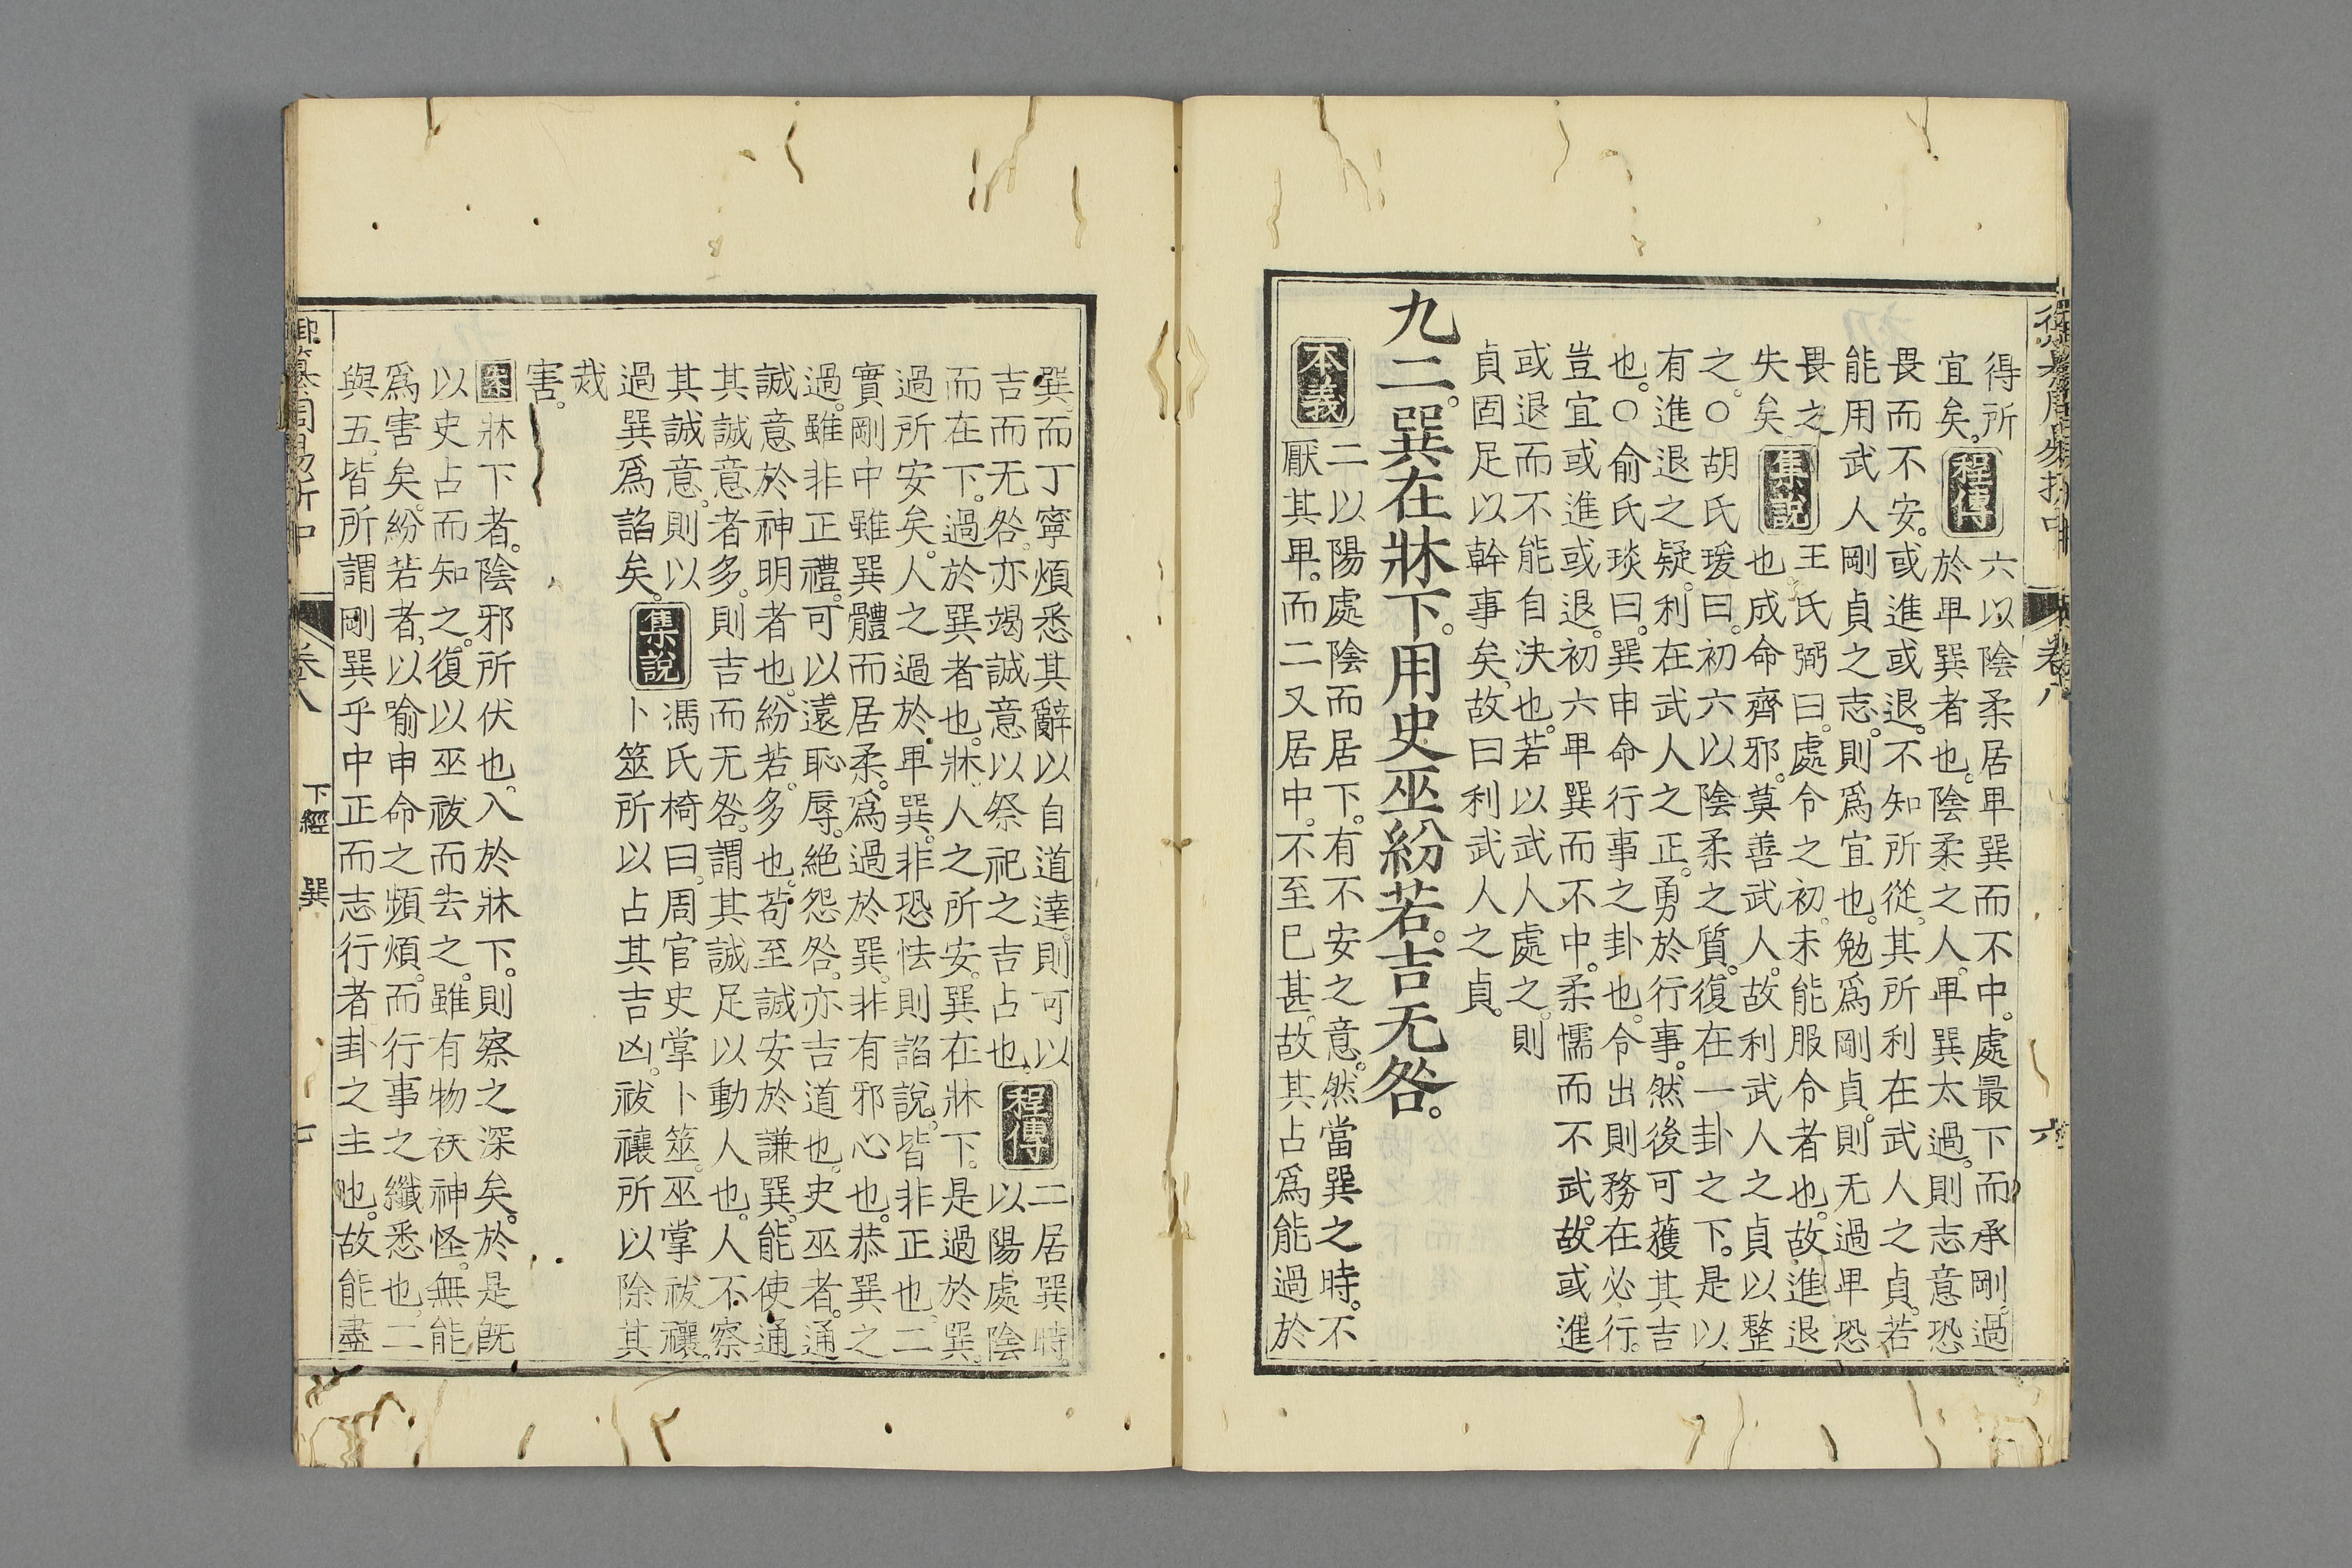 御纂周易折中 卷八 六
得所
宜矣。
程傳
六以陰柔居卑巽而不中。處最下而承剛。過
於卑巽者也。陰柔之人。卑巽太過。則志意恐
畏而不安。或進或退。不知所從。其所利在武人之貞。若
能用武人剛貞之志。則爲宜也。勉爲剛貞。則无過卑恐
畏之
失矣
集說
王氏弼曰。處令之初。未能服令者也。故進退
也。成命齊邪。莫善武人。故利武人之貞以整
之。○胡氏瑗曰。初六以陰柔之質。復在一卦之下。是以
有進退之疑。利在武人之正。勇於行事。然後可獲其吉
也。○俞氏琰曰。巽申命行事之卦也。令出則務在必行。
豈宜或進或退。初六卑巽而不中。柔懦而不武。故或進
或退而不能自決也。若以武人處之。則
貞固足以幹事矣。故曰利武人之貞。
九二。巽在牀下。用史巫紛若。吉无咎。
本義
二以陽處陰而居下。有不安之意。然當巽之時。不
厭其卑。而二又居中。不至已甚。故其占爲能過於
巽。而丁寧煩悉其辭以自道達。則可以
吉而无咎。亦竭誠意以祭祀之吉占也。
程傳
二居巽時。
以陽處陰
而在下。過於巽者也。牀。人之所安。巽在牀下。是過於巽。
過所安矣。人之過於卑巽。非恐怯則諂說。皆非正也。二
實剛中。雖巽體而居柔。爲過於巽。非有邪心也。恭巽之
過。雖非正禮。可以遠恥辱。絕怨咎。亦吉道也。史巫者。通
誠意於神明者也。紛若。多也。苟至誠安於謙巽。能使通
其誠意者多。則吉而无咎。謂其誠足以動人也。人不察
其誠意。則以
過巽爲諂矣。
集說
馮氏椅曰。周官史掌卜筮。巫掌祓禳。
卜筮所以占其吉凶。祓禳所以除其
烖
害。
案
牀下者。陰邪所伏也。入於牀下。則察之深矣。於是旣
以史占而知之。復以巫祓而去之。雖有物祅神怪。無能
爲害矣。紛若者。以喻申命之頻煩。而行事之纖悉也。二
與五。皆所謂剛巽乎中正而志行者。卦之主也。故能盡
御纂周易折中 卷八 下經 巽 七